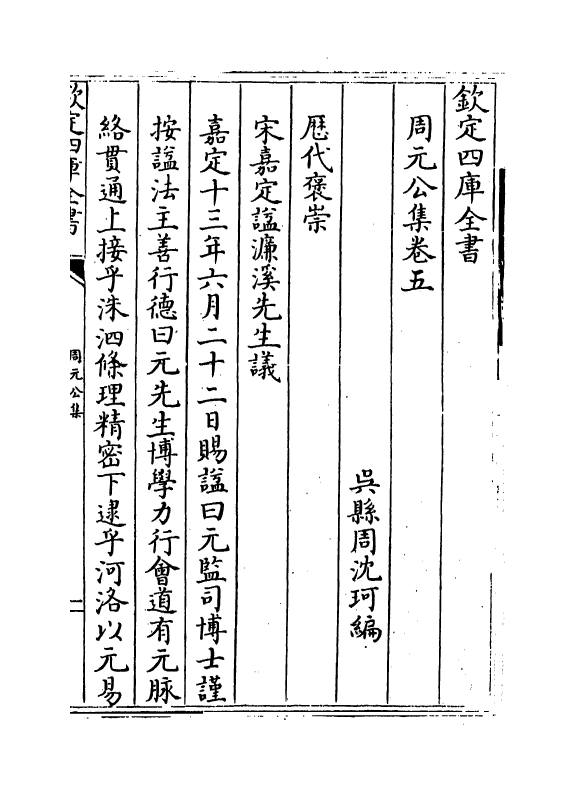 欽定四庫全書
周元公集卷五
吳縣周沈珂編
歴代褒崇
宋嘉定諡濂溪先生議
嘉定十三年六月二十二日賜諡曰元監司博士謹
按諡法主善行德曰元先生博學力行會道有元脉
絡貫通上接乎洙泗條理精密下逮乎河洛以元易
欽定四庫全書
周元公集